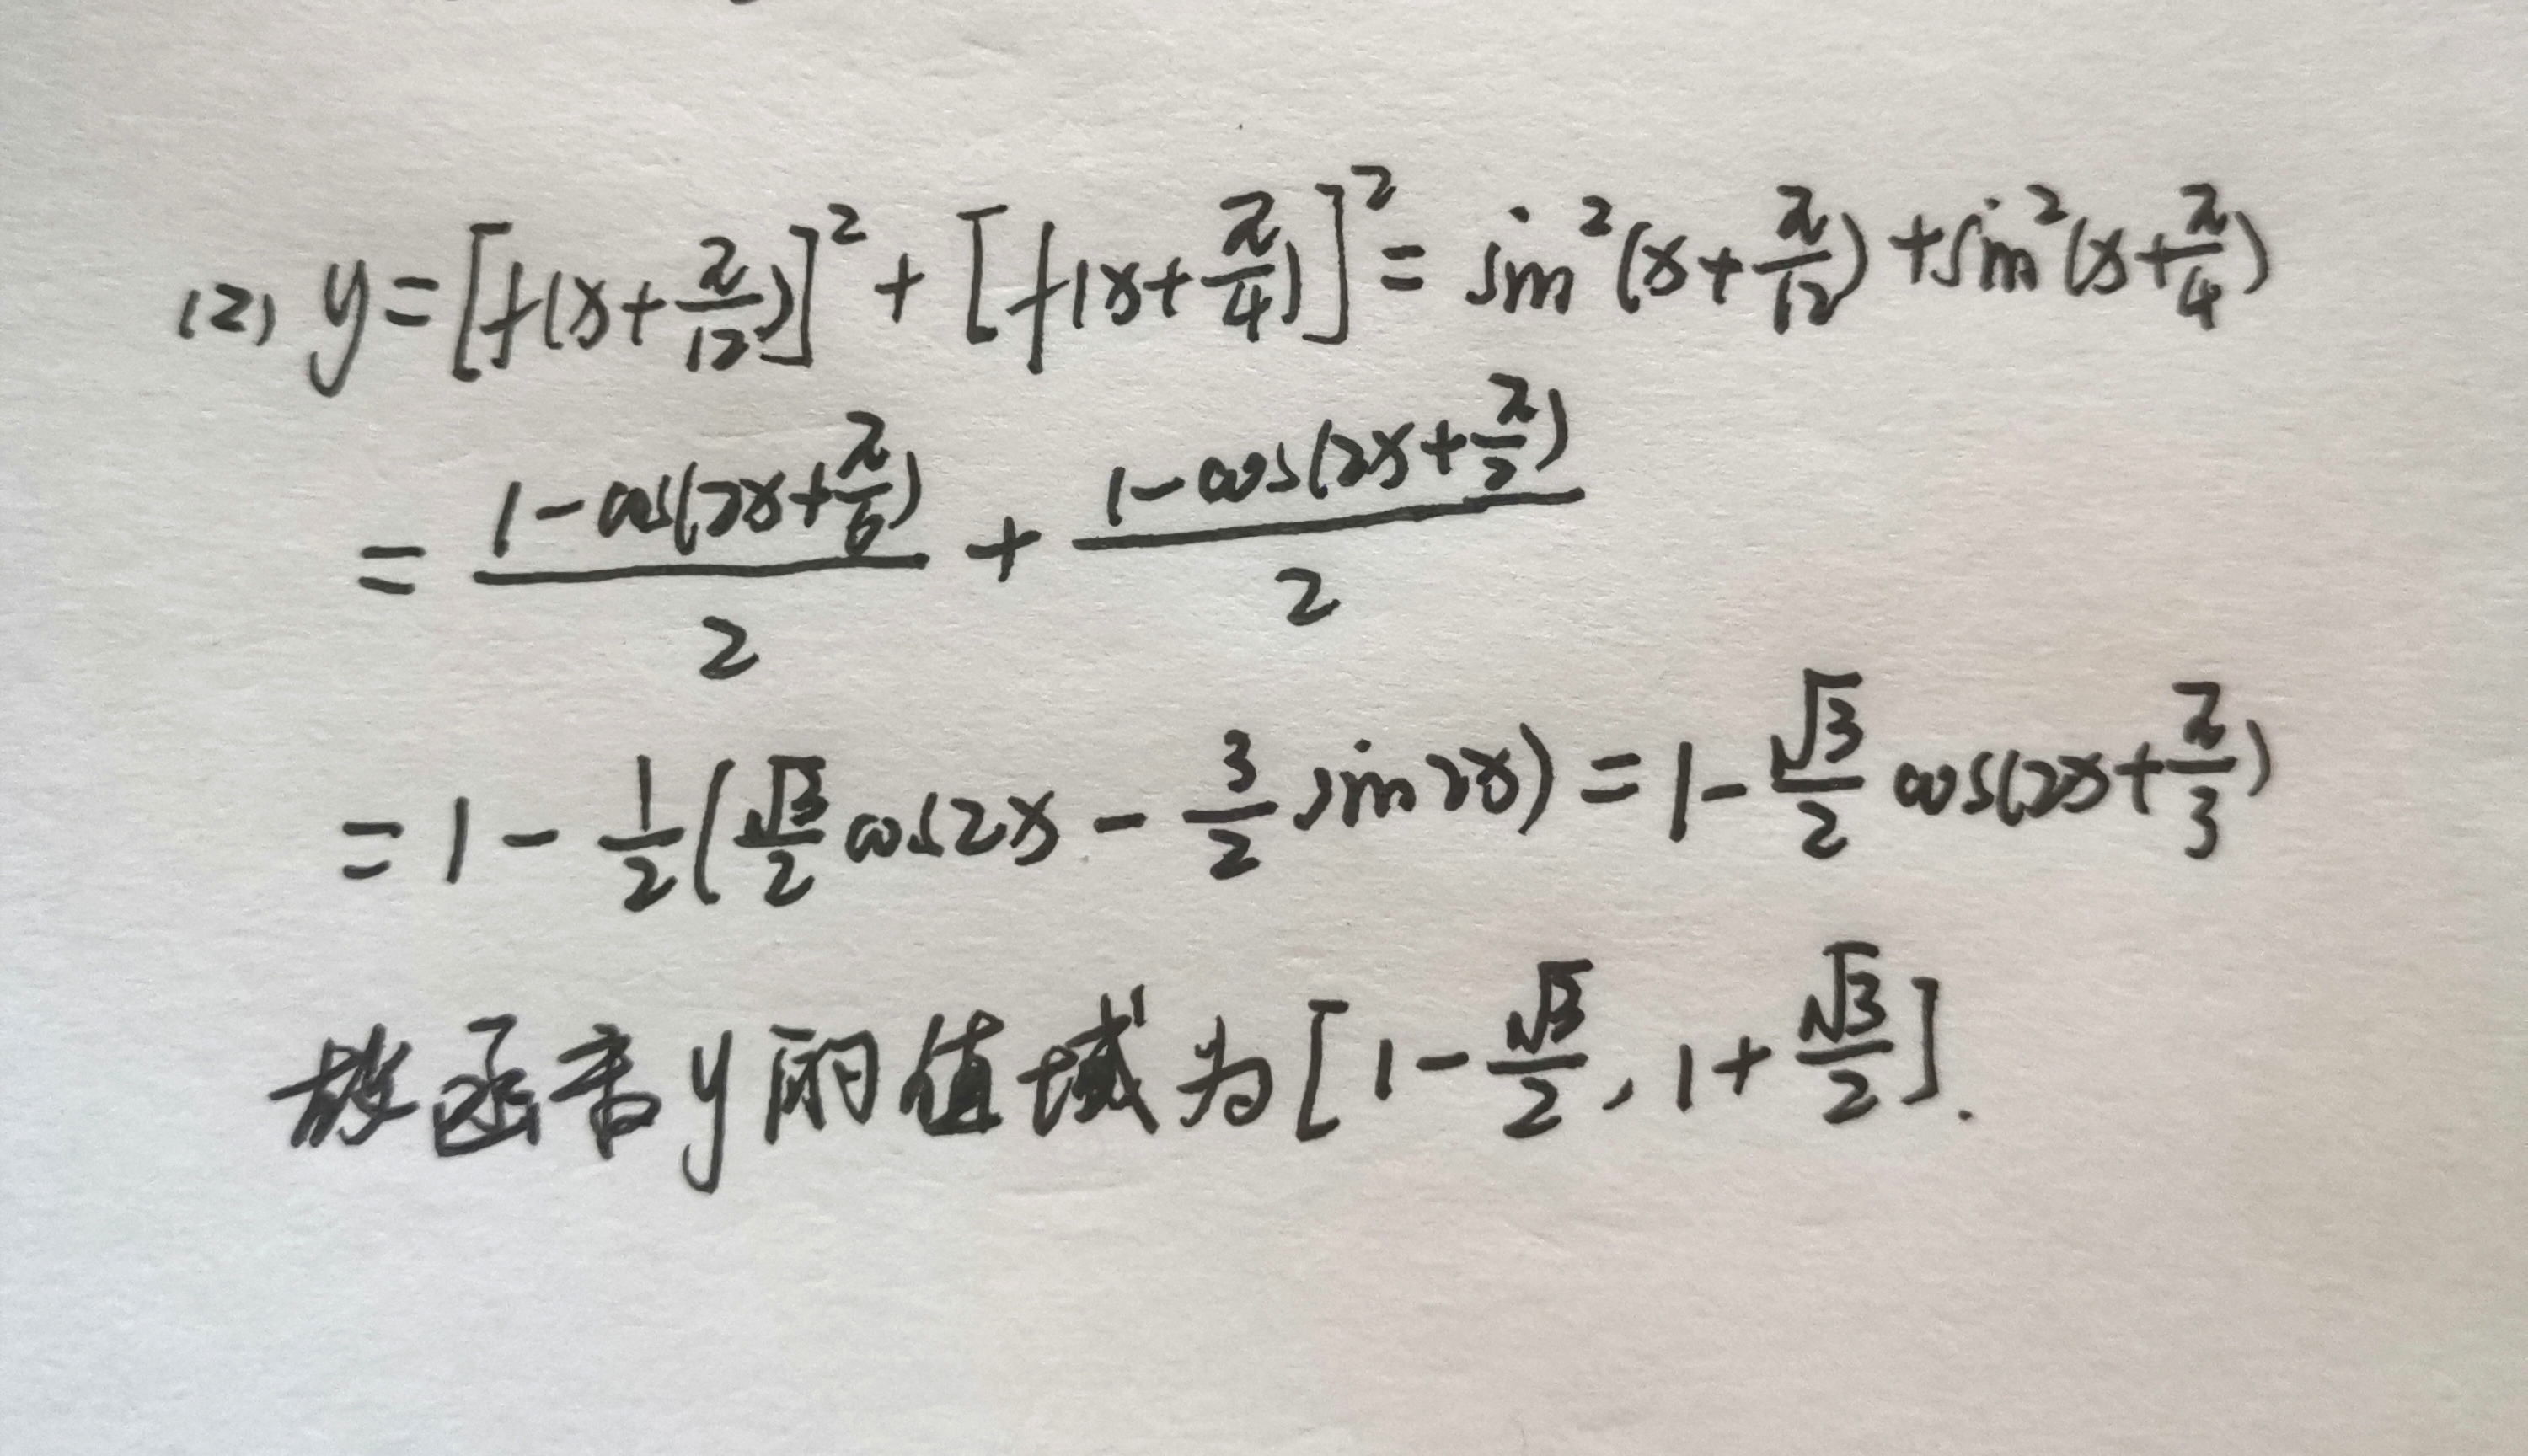 (2) y=[f(x+π/12)]²+[f(x+π/4)]²=sin²(x+π/12)+sin²(x+π/4)
=(1-cos(2x+π/6))/2+(1-cos(2x+π/2))/2
=1-1/2(√3/2cos2x-3/2sin2x)=1-√3/2cos(2x+π/3)
故函数y的值域为[1-√3/2,1+√3/2].